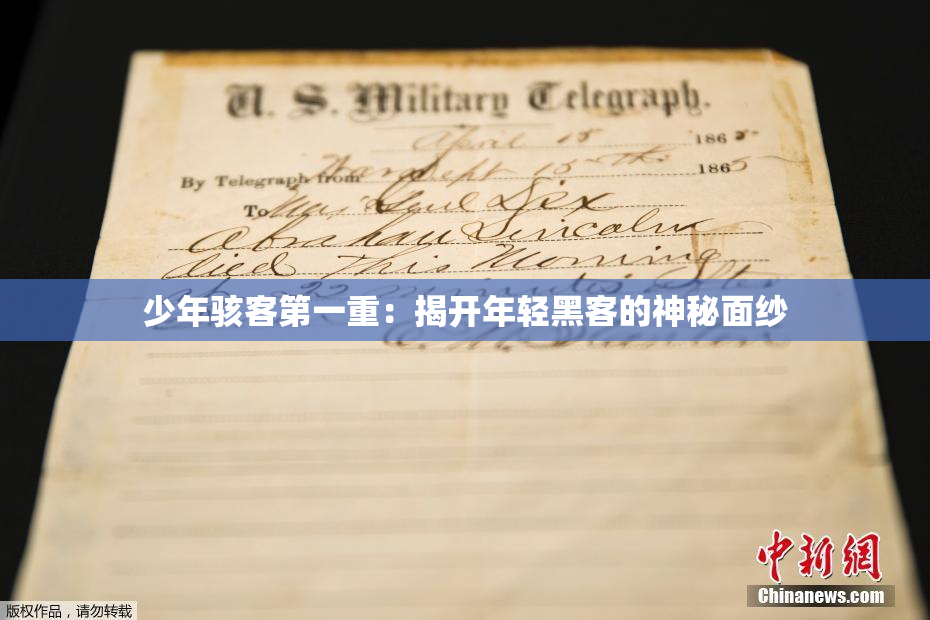 U. S. Military Telegraph.
April 15 1865
By Telegraph from War Dept 15th 1865
To Maj Genl Dix
Abraham Lincoln
died This Morning
at 22 minutes after
少年骇客第一重：揭开年轻黑客的神秘面纱
E. M. Stanton
中新網
Chinanews.com
版权作品，请勿转载